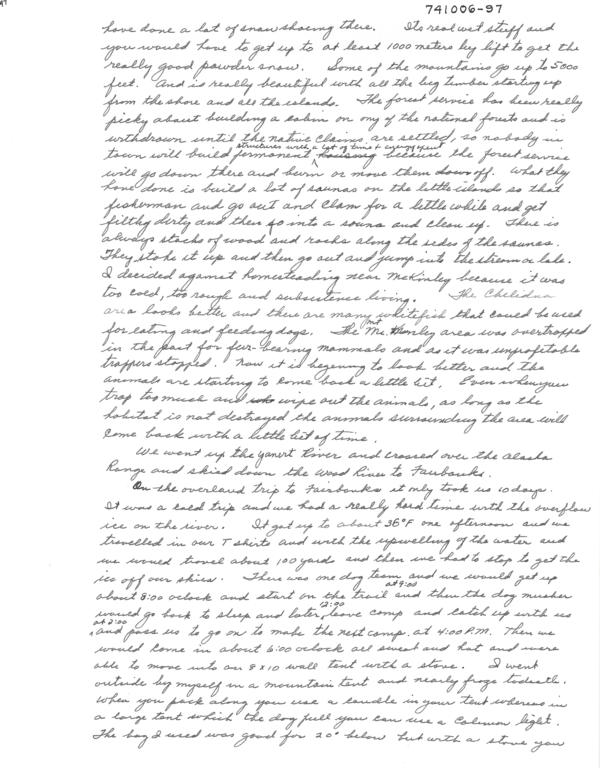 741006-97
have done a lot of snow shoeing there. Its real wet stuff and
you would have to get up to at least 1000 meters by lift to get the
really good powder snow. Some of the mountains go up to 5000
feet. And is really beautiful with all the big timber starting up
from the shore and all the islands. The forest service has been really
picky about building a cabin on any of the national forests and is
withdrawn until the native claims are settled, so nobody in
structures with a lot of time & energy spent
town will build permanent housing because the forest service
will go down there and burn or move them down off. What they
have done is build a lot of saunas on the little islands so that
fisherman and go out and clam for a little while and get
filthy dirty and then go into a sauna and clean up. There is
always stacks of wood and rocks along the sides of the saunas.
They stoke it up and then go out and jump into the stream or lake.
I decided against homesteading near McKinley because it was
too cold, too rough and subsistence living. The
area looks better and there are many whitefish that could be used
for eating and feeding dogs. The Mt. area was overtrapped
in the past for fur bearing mammals and as it was unprofitable
trappers stopped. Now it is begening to look better and the
animals are starting to come back a little bit. Even when you
trap too much and wipe out the animals, as long as the
habitat is not destroyed the animals surrounding the area will
come back with a little bit of time.
We went up the Yanert River and crossed over the Alaska
Range and skied down the Wood River to Fairbanks.
On the overland trip to Fairbanks it only took us 10 days.
It was a cold trip and we had a really hard time with the overflow
ice on the river. It got up to about 36°F one afternoon and we
travelled in our T shirts and with the upwelling of the water and
we would travel about 100 yards and then we had to stop to get the
ice off our skiis. There was one dog team and we would get up
at 9:00
about 8:00 oclock and start on the trail and then the dog musher
12:00
would go back to sleep and later leave camp and catch up with us
at 2:00
and pass us to go on to make the next camp at 4:00 P.M. Then we
would come in about 6:00 oclock all sweat and hot and were
able to move into our 8x10 wall tent with a stove. I went
outside by myself in a mountain tent and nearly froze to death.
When you pack along you use a candle in your tent whereas in
a large tent which the dog pull you can use a Coleman light.
The bag I used was good for 20° below but with a stove you